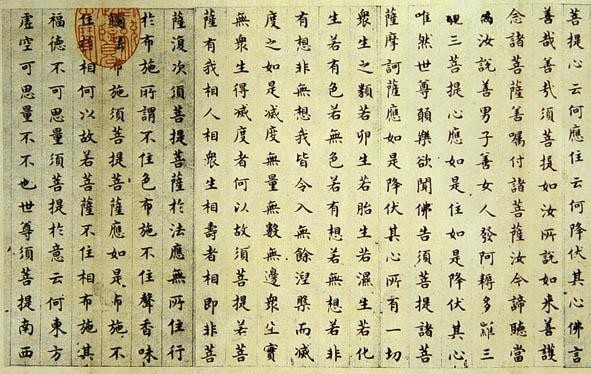 菩提心云何應住云何降伏其心佛言
善哉善哉須菩提如汝所說如來善護
念諸菩薩善囑付諸菩薩汝今諦聽當
為汝說善男子善女人發阿耨多羅三
藐三菩提心應如是住如是降伏其心
唯然世尊願樂欲聞佛告須菩提諸菩
薩摩訶薩應如是降伏其心所有一切
衆生之類若卵生若胎生若濕生若化
生若有色若無色若有想若無想若非
有想非無想我皆令入無餘涅槃而滅
度之如是滅度無量無數無邊衆生實
無衆生得滅度者何以故須菩提若菩
薩有我相人相衆生相壽者相即非菩
薩復次須菩提菩薩於法應無所住行
於布施所謂不住色布施不住聲香味
觸法布施須菩提菩薩應如是布施不
住於相何以故若菩薩不住相布施其
福德不可思量須菩提於意云何東方
虛空可思量不不也世尊須菩提南西